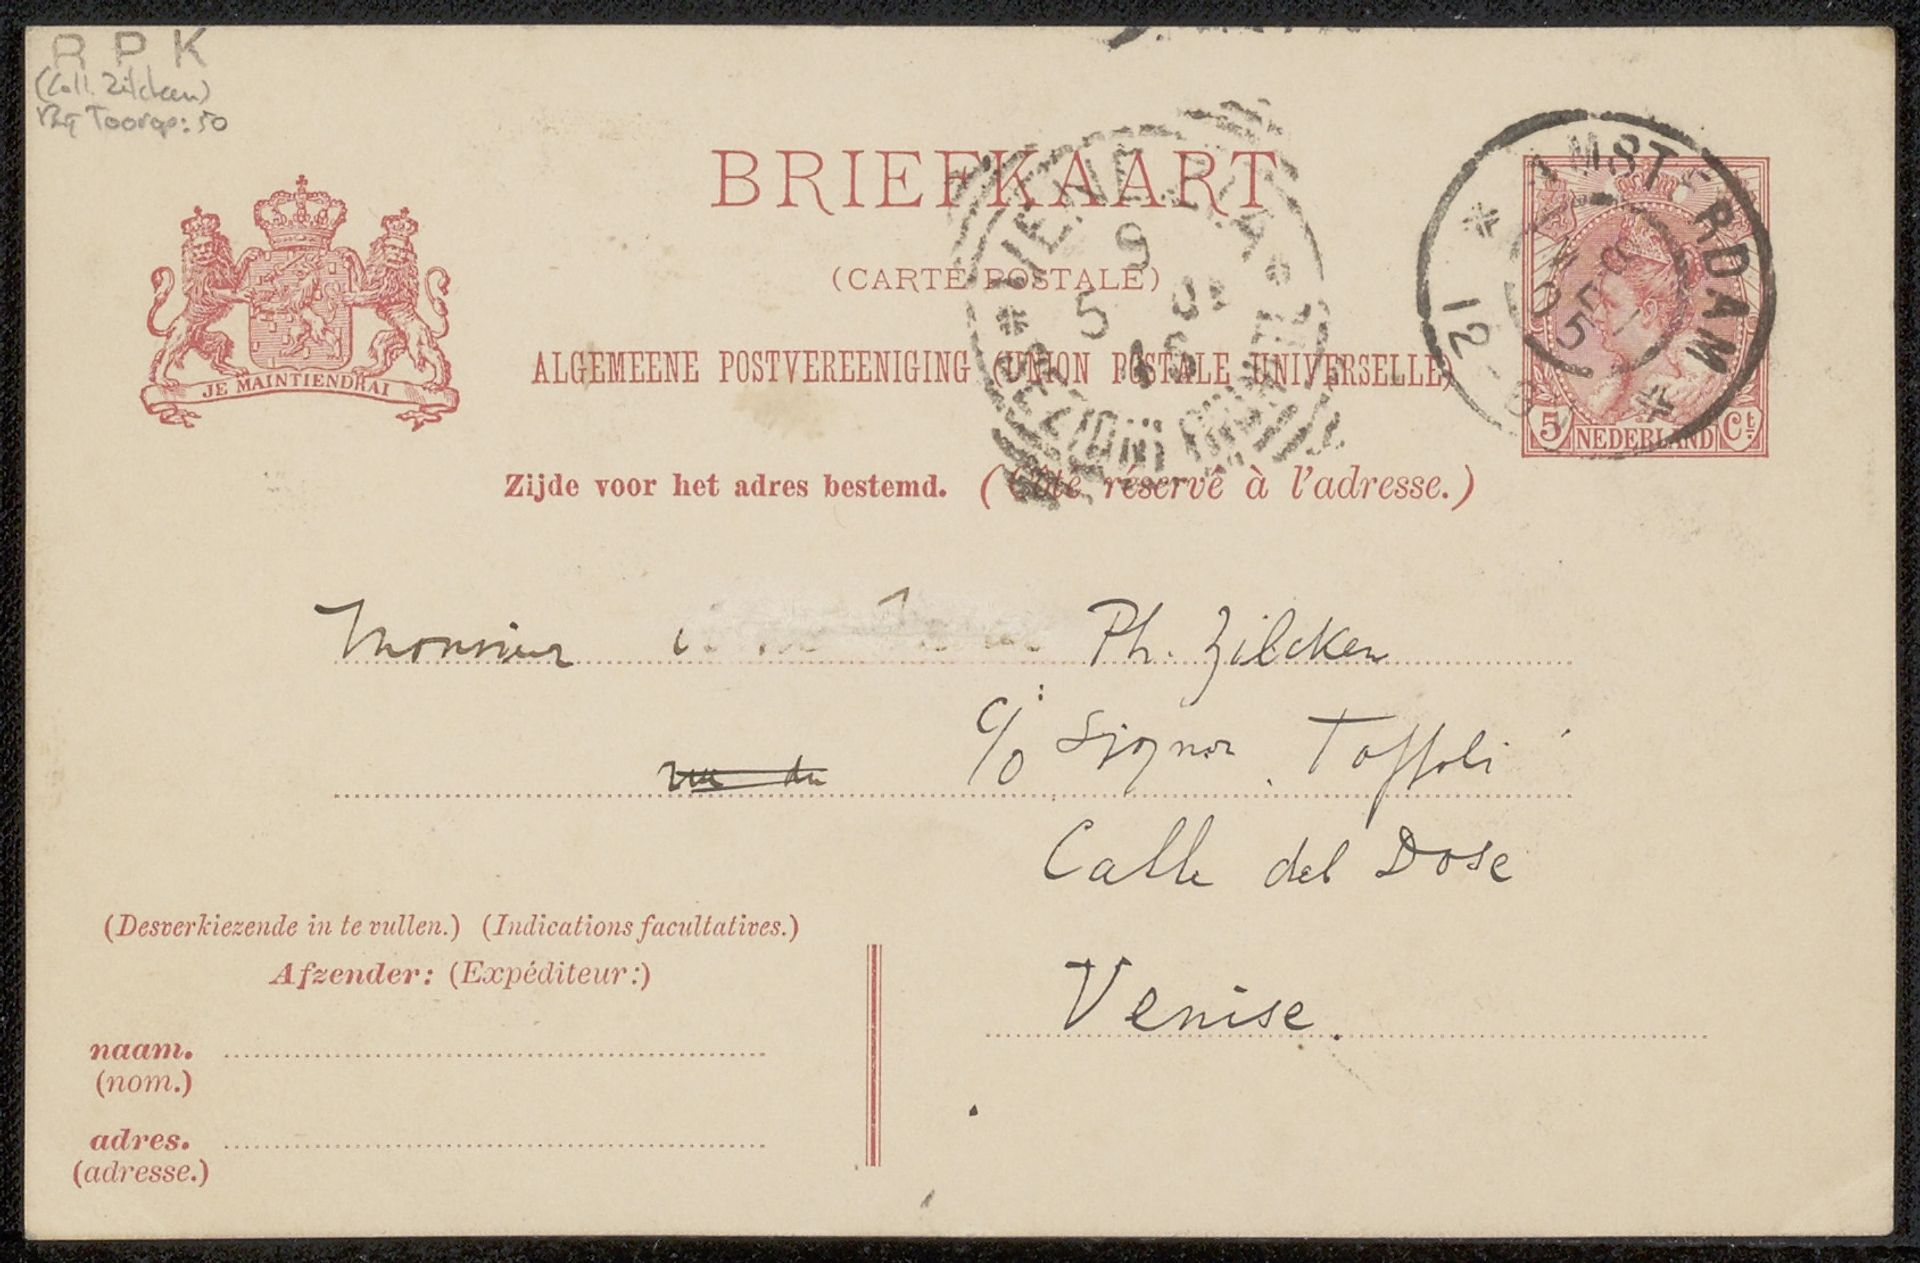 R P K
(Coll. Zilcken)
Toorop: 50
BRIEFKAART
(CARTE POSTALE)
ALGEMEENE POSTVEREENIGING (UNION POSTALE UNIVERSELLE)
Zijde voor het adres bestemd. (Côté réservé à l'adresse.)
JE MAINTIENDRAI
AMSTERDAM
5 NEDERLAND Ct
VENEZIA
9
5
Monsieur Ph. Zilcken
c/o Signor Toffoli
Calle del Dose
Venise.
(Desverkiezende in te vullen.) (Indications facultatives.)
Afzender: (Expéditeur:)
naam.
(nom.)
adres.
(adresse.)